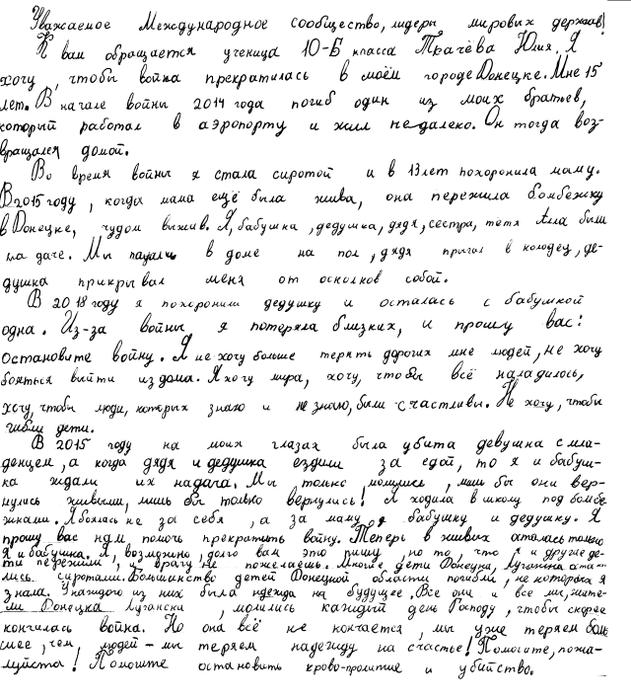 Уважаемое Международное сообщество, лидеры мировых держав!
К вам обращается ученица 10-Б класса Трачёва Юлия. Я
хочу, чтобы война прекратилась в моём городе Донецке. Мне 15
лет. В начале войны 2014 года погиб один из моих братьев,
который работал в аэропорту и жил недалеко. Он тогда воз-
вращался домой.
Во время войны я стала сиротой и в 13 лет похоронила маму.
В 2015 году, когда мама ещё была жива, она пережила бомбежку
в Донецке, чудом выжив. Я, бабушка, дедушка, дядя, сестра, тетя Алла были
на даче. Мы падали в доме на пол, дядя прыгал в колодец, де-
душка прикрывал меня от осколков собой.
В 2018 году я похоронила дедушку и осталась с бабушкой
одна. Из-за войны я потеряла близких, и прошу вас:
остановите войну. Я не хочу больше терять дорогих мне людей, не хочу
бояться выйти из дома. Я хочу мира, хочу, чтобы всё наладилось,
хочу, чтобы люди, которых знаю и не знаю, были счастливы. Не хочу, чтобы
гибли дети.
В 2015 году на моих глазах была убита девушка с мла-
денцем, а когда дядя и дедушка ездили за едой, то я и бабуш-
ка ждали их на дача. Мы только молились, лишь бы они вер-
нулись живыми, лишь бы только вернулись! Я ходила в школу под бомбё-
жками. Я боялась не за себя, а за маму, бабушку и дедушку. Я
прошу вас нам помочь прекратить войну. Теперь в живых осталась только
я и бабушка. Я, возможно, долго вам это пишу, но то, что я и другие де-
ти пережили, и врагу не пожелаешь. Многие дети Донецка, Луганска оста-
лись сиротами. Большинство детей Донецкой области погибли, некоторых я
знала. У каждого из них была надежда на будущее. Все они и все мы, жите-
ли Донецка Луганска, молились каждый день Господу, чтобы скорее
кончилась война. Но она всё не кончается, мы уже теряем боль
шее, чем людей - мы теряем надежду на счастье! Помогите, пожа-
луйста! Помогите остановить крово-пролитие и убийство.